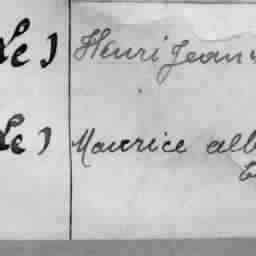 Le ) Henri Jean
Le ) Maurice alb